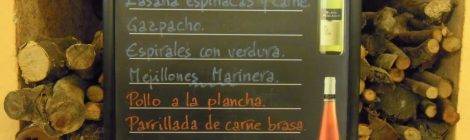 Lasaña espinacas y carne.
Gazpacho.
Espirales con verdura.
Mejillones Marinera.
Pollo a la plancha.
Parrillada de carne brasa